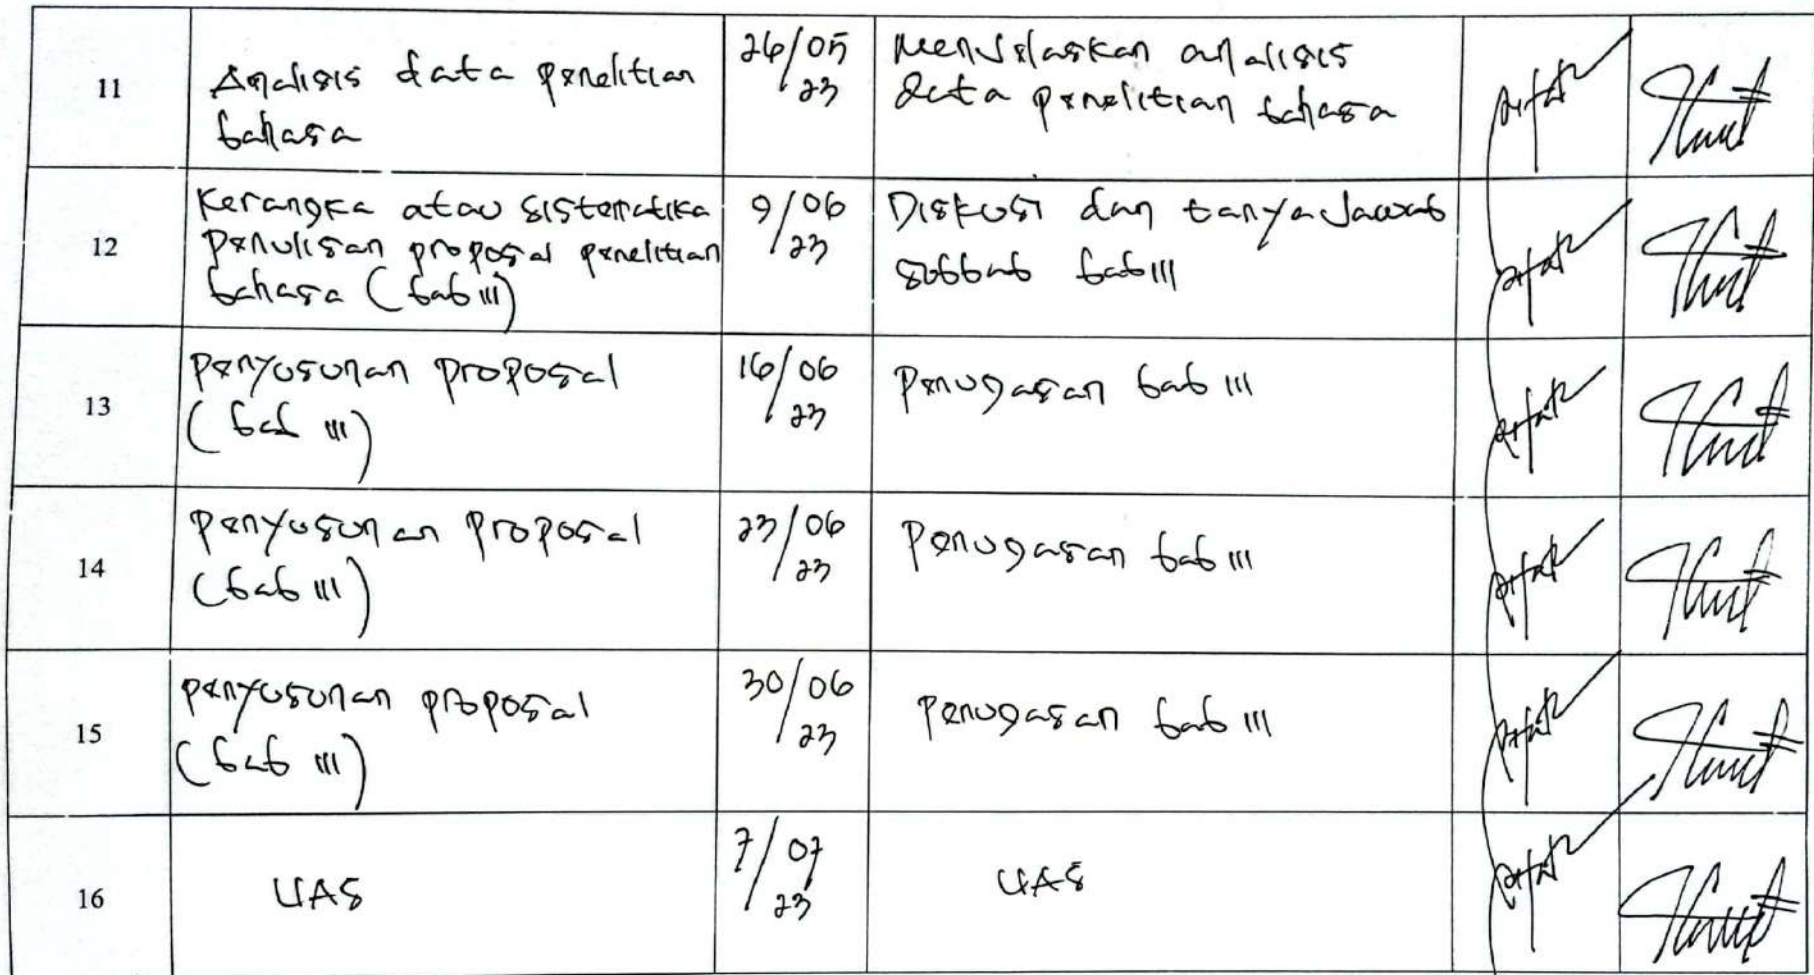 11
Analisis data penelitian
bahasa
26/05
23
Menjelaskan analisis
data penelitian bahasa
12
Kerangka atau sistematika
penulisan proposal penelitian
bahasa (bab III)
9/06
23
Diskusi dan tanya Jawab
subbab bab III
13
Penyusunan proposal
(bab III)
16/06
23
Penugasan bab III
14
Penyusunan proposal
(bab III)
23/06
23
Penugasan bab III
15
Penyusunan proposal
(bab III)
30/06
23
Penugasan bab III
16
UAS
7/07
23
UAS